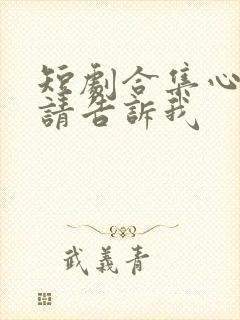 短劇合集心
請告訴我
武義青